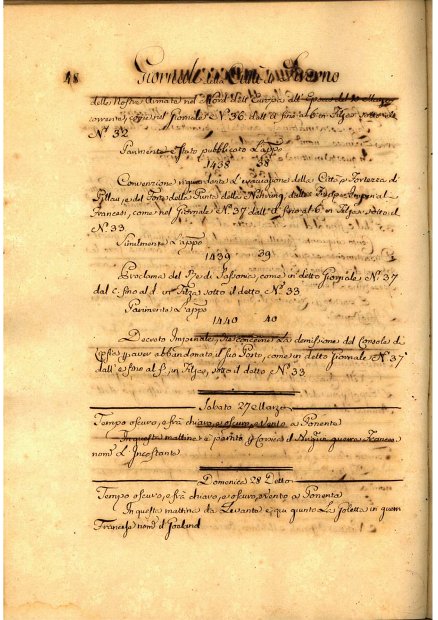 48 Giornale della Città Inferno
delle Nostre Armate nel Nord dell'Europa all'Epoca del 10 Marzo
corrente, come nel Giornale Nº 36. dall' a fino al 6 in Filza sotto il
Nº 32
Parimente è stato pubblicato L'appo
1438 38
Convenzione riguardante L'evacuazione della Città, e Fortezza di
Pillau, e del Forte della Punta della Nehrung, dalle Truppe Imperiali
Francesi, come nel Giornale Nº 37 dall' a fino al 6 in Filza sotto il
Nº 33
Similmente L'appo
1439 39
Proclama del Re di Sassonia, come in detto Giornale Nº 37
dal c. fino al d. in Filza sotto il detto Nº 33
Parimente L'appo
1440 40
Decreto Imperiale, che concerne La demissione del Console di
aver abbandonato il suo Posto, come in detto Giornale Nº 37
dall' e fino al f, in Filza, sotto il detto Nº 33.
Sabato 27 Marzo
Tempo oscuro, e frà chiaro, e oscuro, e vento a Ponente
In questa mattina è partito guerra Francese
nom.º L'Incostante
Domenica 28 Detto
Tempo oscuro, e frà chiaro, e oscuro, e vento a Ponente
In questa mattina da Levante è qui giunto La Goletta in guerra
Francese nom.ª il